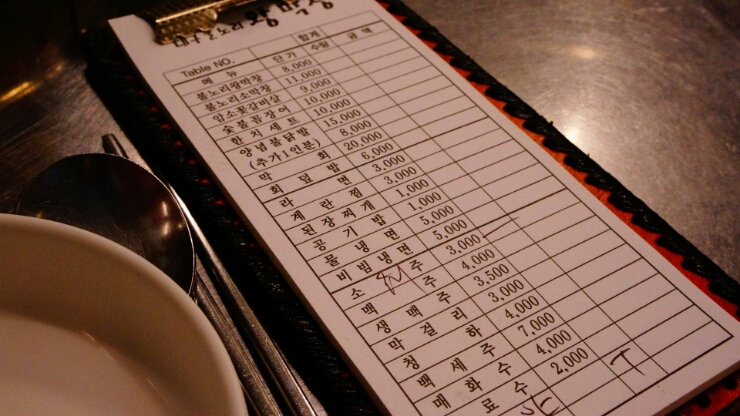 대구불노리 왕막창
Table NO. 합계
메 뉴 단가 수량 금 액
불노리왕막창 8,000
불노리소막창 11,000
암소꽃갈비살 9,000
숯불꼼장어 10,000
한치세트 10,000
양념불닭발 15,000
(추가1인분) 8,000
막 회 20,000
회 덮 밥 6,000
라 면 3,000
계 란 찜 3,000
된장찌개 1,000
공 기 밥 1,000
물 냉 면 5,000
비빔냉면 5,000
소 주 3,000
맥 주 4,000
생 맥 주 3,500
막 걸 리 3,000
청 하 4,000
백 세 주 7,000
매 화 수 4,000
료 수 2,000